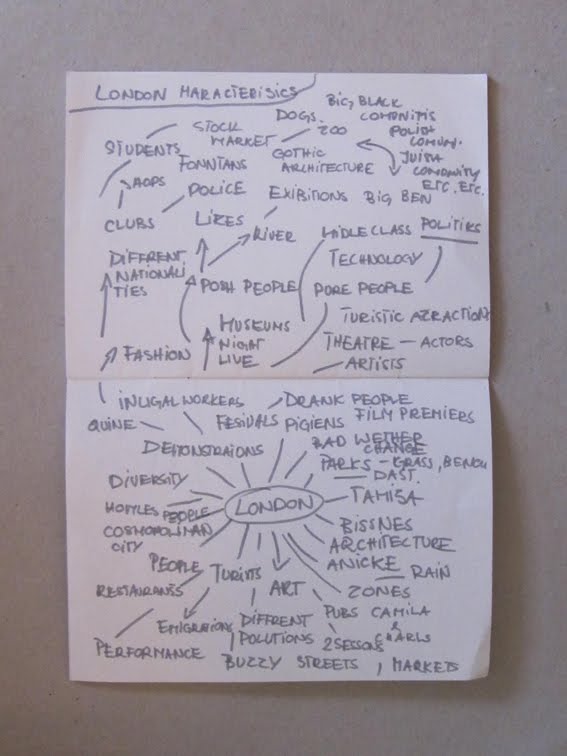 LONDON MARACTERISICS
BIG BLACK
DOGS. COMUNITIS
STOCK ZOO POLISH
STUDENTS MARKET COMUNI.
FONNTANS GOTHIC JUISH
ARCHITECTURE COMUNITY
POLICE ETC. ETC.
EXIBITIONS BIG BEN
CLUBS LIKES MIDLE CLASS POLITIKS
RIVER
DIFFRENT TECHNOLOGY
NATIONALI
TIES POSH PEOPLE PORE PEOPLE
MUSEUMS TURISTIC ATRACTIONS
NIGHT THEATRE – ACTORS
FASHION LIVE ARTISTS
INLIGAL WORKERS DRANK PEOPLE
QUINE FESIVALS PIGIENS FILM PREMIERS
DEMONSTRAIONS BAD WETHER
CHANGE
PARKS – GRASS, BENCH
DIVERSITY DAST.
LONDON TAMISA
PEOPLE
COSMOPOLIMAN BISSNES
CITY ARCHITECTURE
PEOPLE ANICKE
TURISTS RAIN
RESTAURANTS ART ZONES
EMIGRAIONS DIFFRENT PUBS CAMILA
POLUTIONS &
PERFORMANCE 2 SESSONS CHARLS
BUZZY STREETS , MARKETS